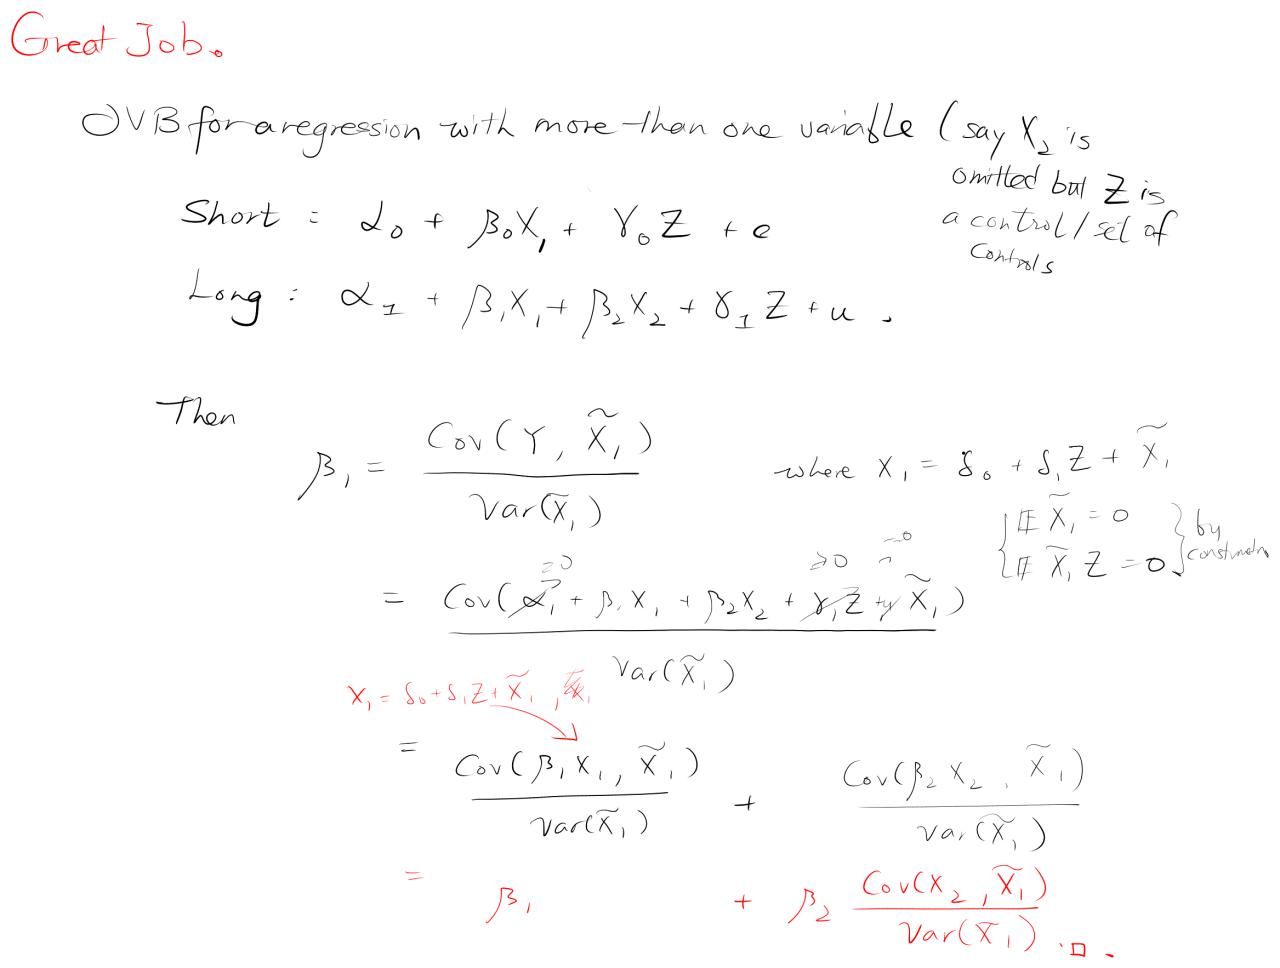 Great Job.
OVB for a regression with more than one variable (say X₂ is
omitted but Z is
a control/set of
controls
Short : α₀ + β₀X₁ + γ₀Z + e
Long : α₁ + β₁X₁ + β₂X₂ + γ₁Z + u .
Then
β₁ = Cov(Y, X̃₁) / Var(X̃₁) where X₁ = δ₀ + δ₁Z + X̃₁
𝔼 X̃₁ = 0
𝔼 X̃₁ Z = 0 } by
=0 =0 =0
= Cov(α₁ + β₁X₁ + β₂X₂ + γ₁Z + u, X̃₁) / Var(X̃₁)
X₁ = δ₀ + δ₁Z + X̃₁
= Cov(β₁X₁, X̃₁) / Var(X̃₁) + Cov(β₂X₂, X̃₁) / Var(X̃₁)
= β₁ + β₂ Cov(X₂, X̃₁) / Var(X̃₁) . □ .